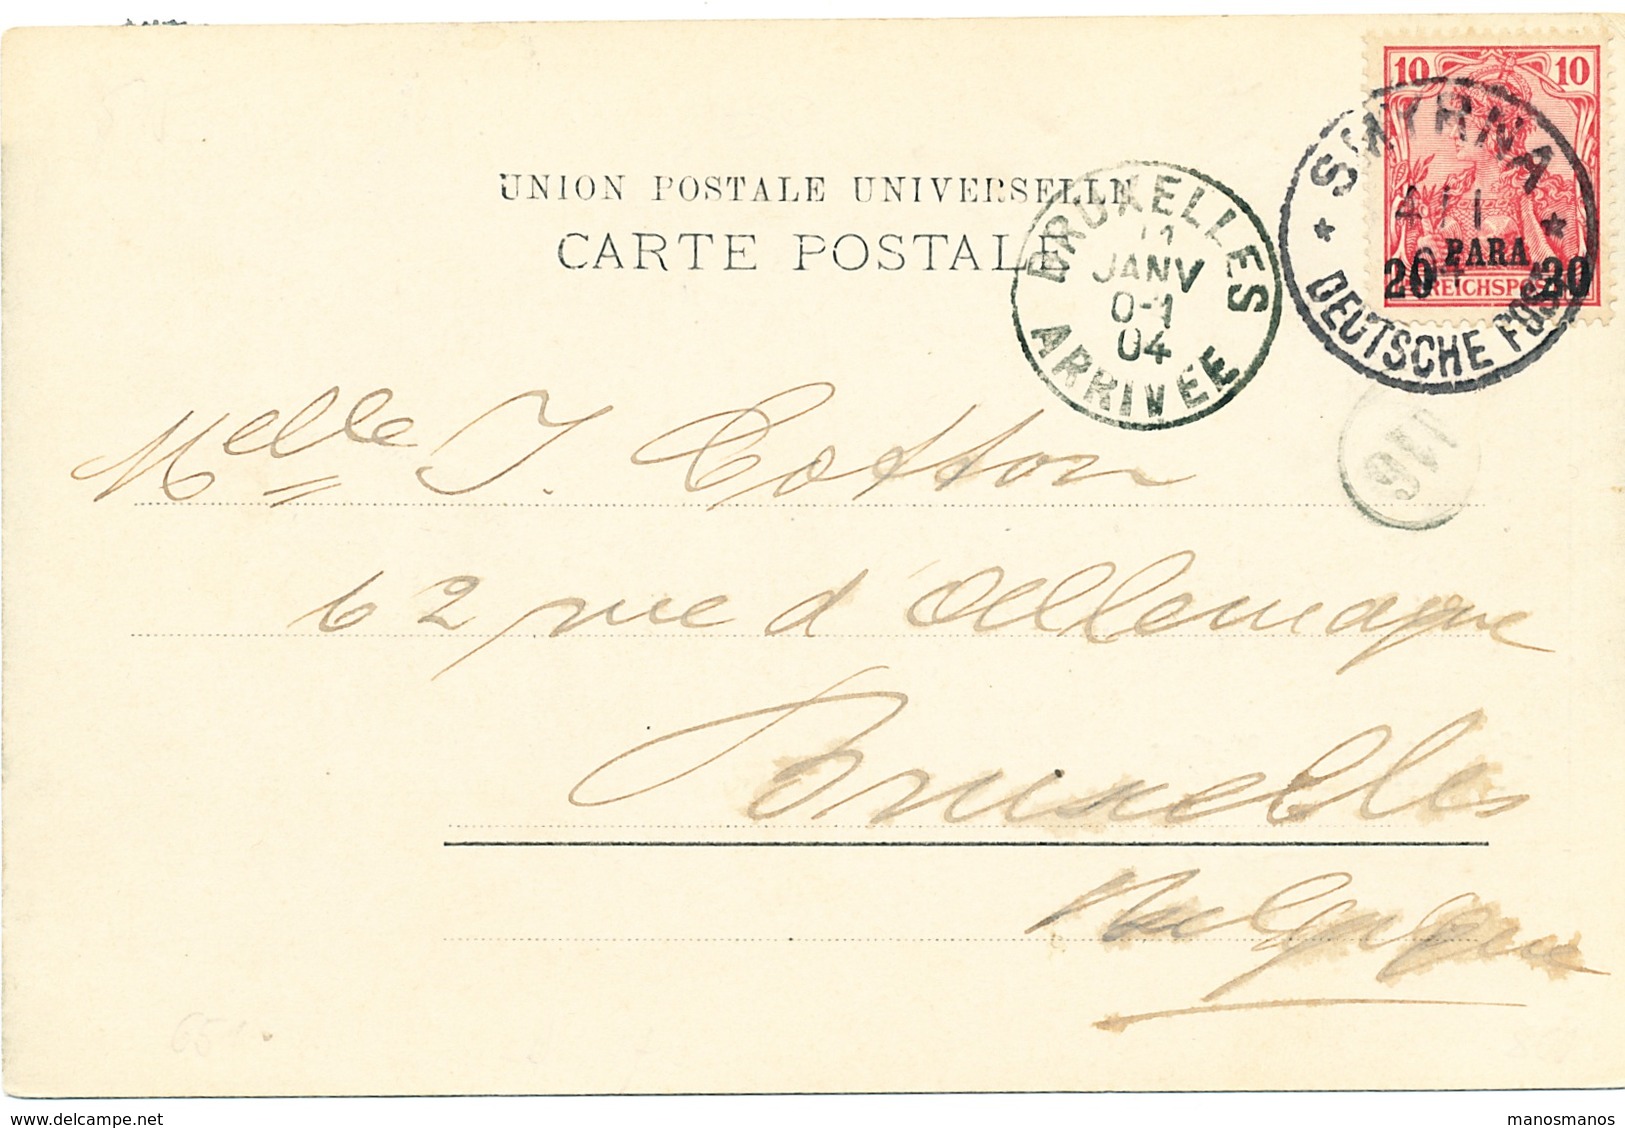 10 10
SMYRNA
4/1
04
DEUTSCHE POST
20 PARA 20
REICHSPOST
UNION POSTALE UNIVERSELLE
CARTE POSTALE
BRUXELLES
11
JANV
04
ARRIVÉE
116
Melle J. Cotton
62 rue d'Allemagne
Bruxelles
Belgique
delcampe.net
manosmanos